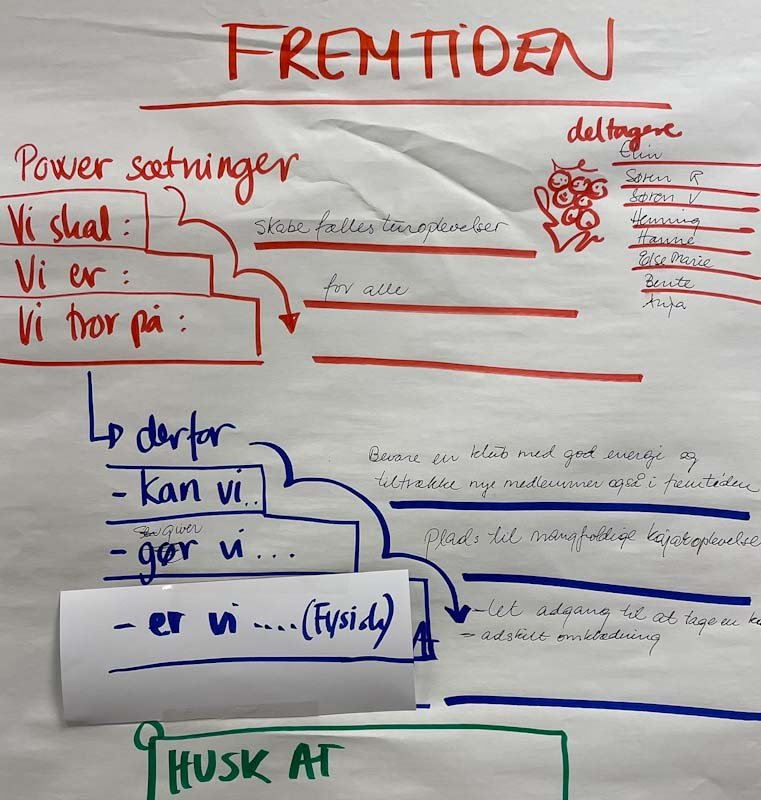 FREMTIDEN
deltagere
Elin
Søren R
Søren V
Henning
Hanne
Else Marie
Bente
Anja
Power sætninger
Vi skal :
skabe fælles turoplevelser
Vi er :
for alle
Vi tror på :
derfor
- kan vi..
Bevare en klub med god energi og
tiltrække nye medlemmer også i fremtiden
- gør vi ...
Plads til mangfoldige kajakoplevelse
- er vi .... (Fysisk)
- let adgang til at tage en
- adskilt omklædning
HUSK AT